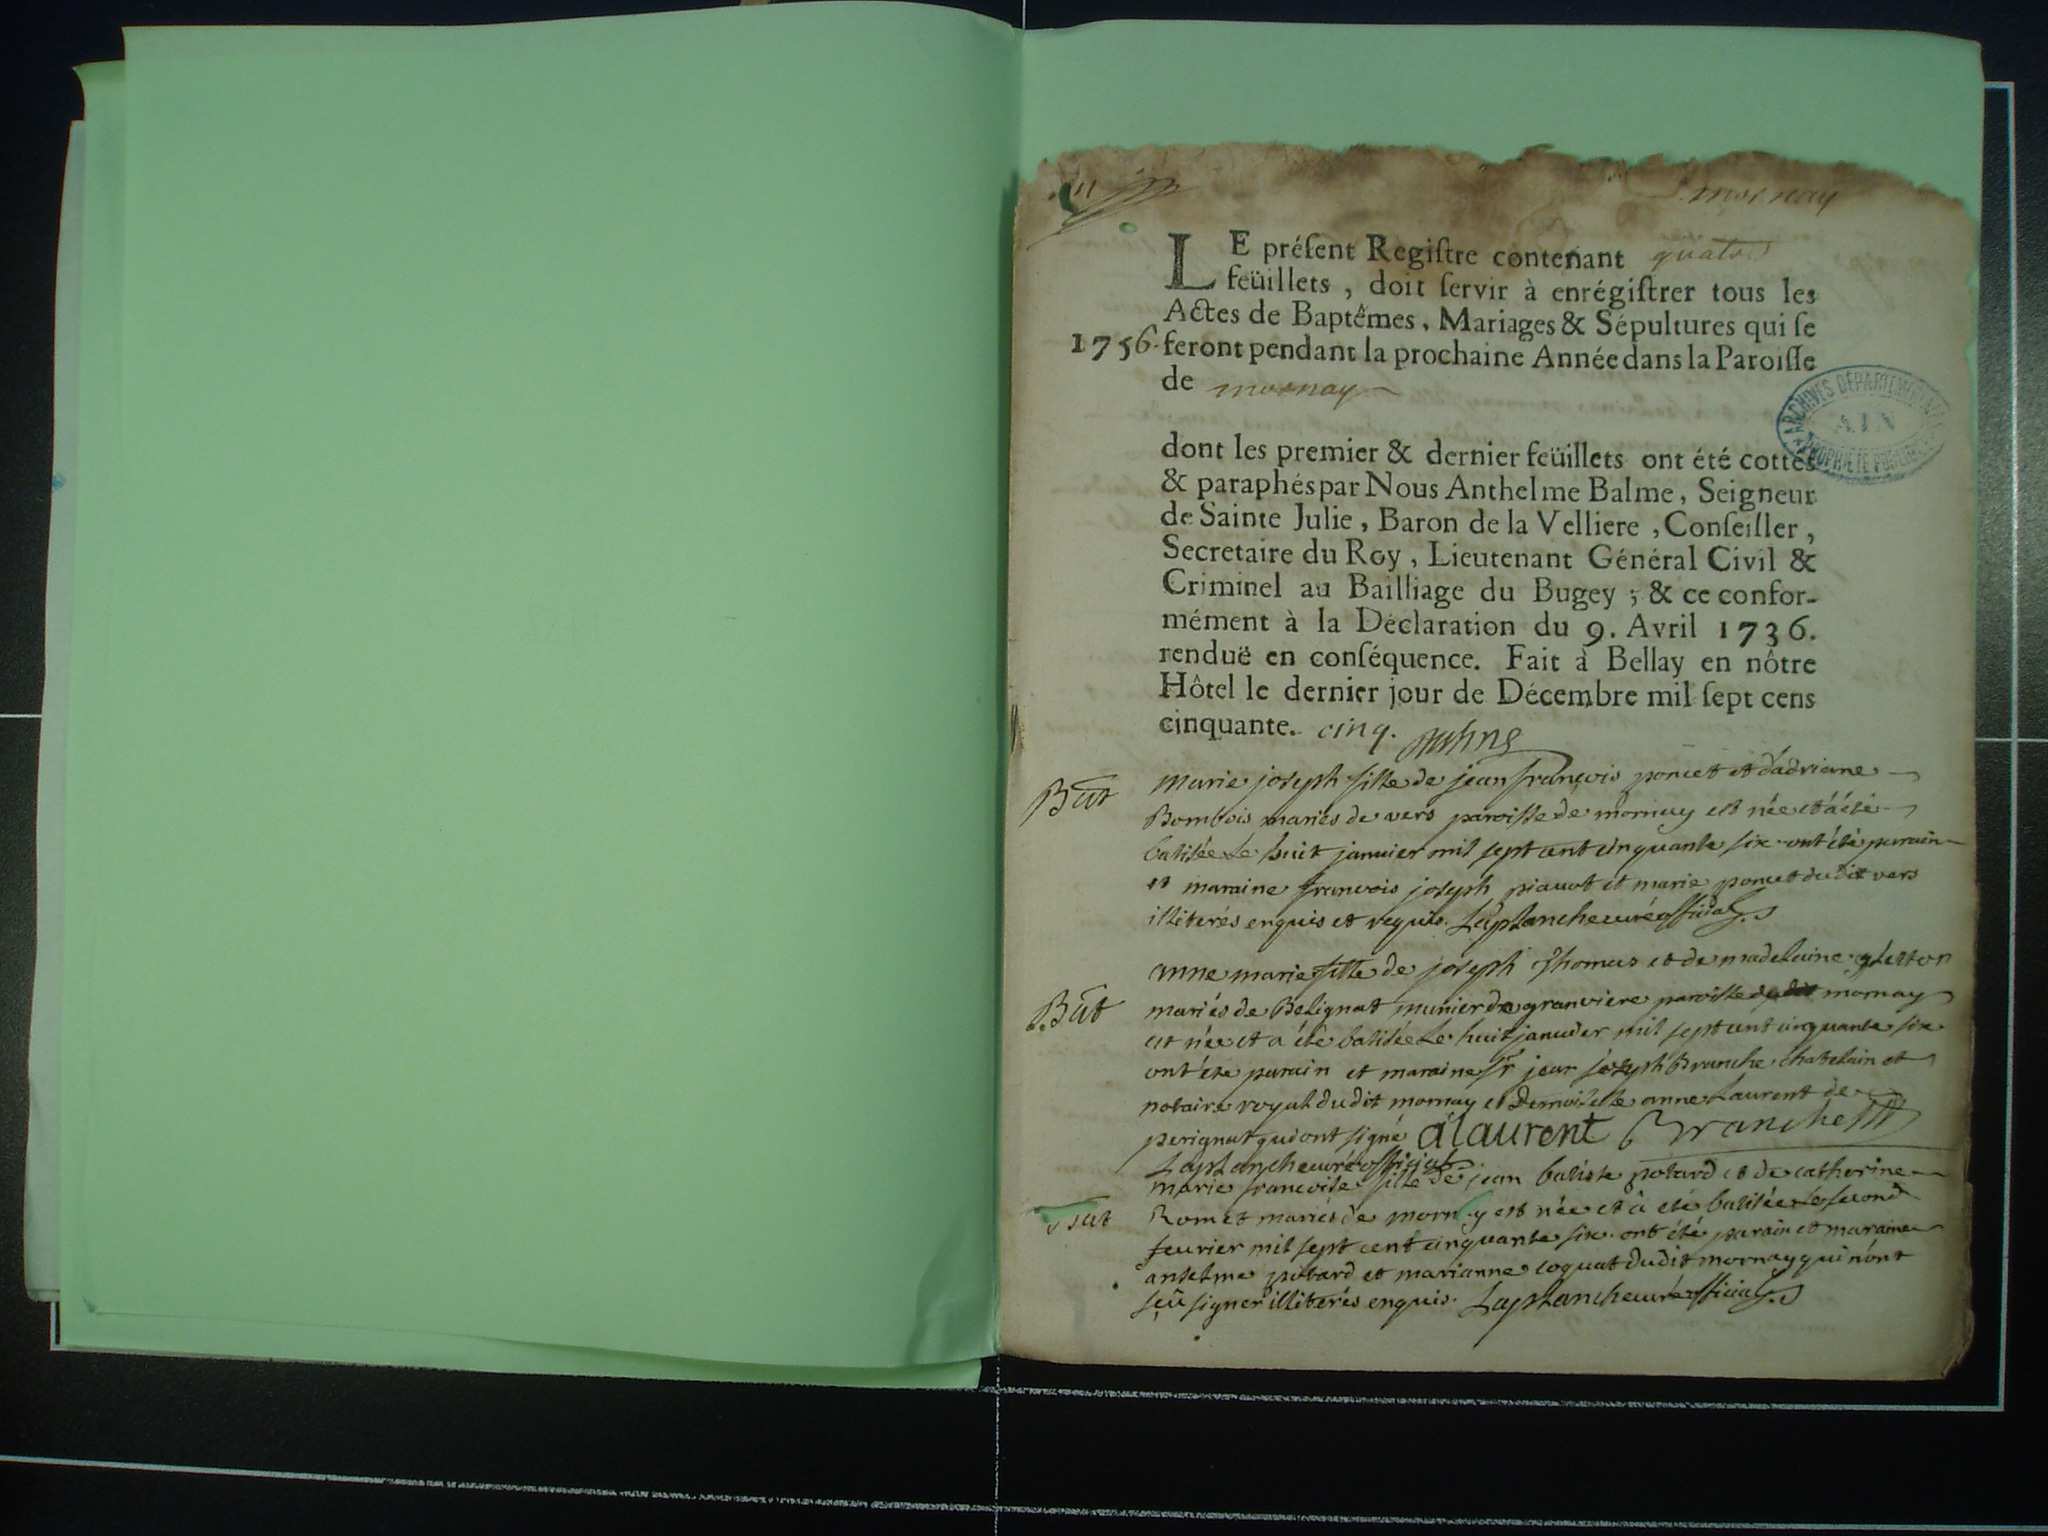 mornay
LE préſent Regiſtre contenant quatre
feüillets, doit ſervir à enrégiſtrer tous les
Actes de Baptêmes, Mariages & Sépultures qui ſe
1756. feront pendant la prochaine Année dans la Paroiſſe
de mornay
ARCHIVES DÉPARTEMENTALES
AIN
PROPRIÉTÉ PUBLIQUE
dont les premier & dernier feüillets ont été cottés
& paraphés par Nous Anthelme Balme, Seigneur
de Sainte Julie, Baron de la Velliere, Conſeiller,
Secretaire du Roy, Lieutenant Général Civil &
Criminel au Bailliage du Bugey; & ce confor-
mément à la Déclaration du 9. Avril 1736.
renduë en conſéquence. Fait à Bellay en nôtre
Hôtel le dernier jour de Décembre mil ſept cens
cinquante. cinq.
Bat marie joseph fille de jean françois poncet et d'adriane
Bombois mariés de vers paroisse de mornay est née et a été
batisée le huit janvier mil sept cent cinquante six. ont été parain
et maraine francois joseph piauot et marie poncet dudit vers
illiterés enquis et requis. Laplanche curé official
Bat anne marie fille de joseph Thomas et de madelaine gletton
mariés de Belignat munier de granviere paroisse de mornay
est née et a été batisée le huit januier mil sept cent cinquante six
ont été parain et maraine sr jean joseph Branche chatelain et
notaire royal dudit mornay et Demoiselle anne Laurent de
perignat qui ont signé a laurent Branche
Laplanche curé official
Bat marie francoise fille de jean batiste potard et de catherine
Romet mariés de mornay est née et a été batisée le second
feurier mil sept cent cinquante six. ont été parain et maraine
anselme potard et marianne coquat dudit mornay qui n'ont
sçu signer illiterés enquis. Laplanche curé official